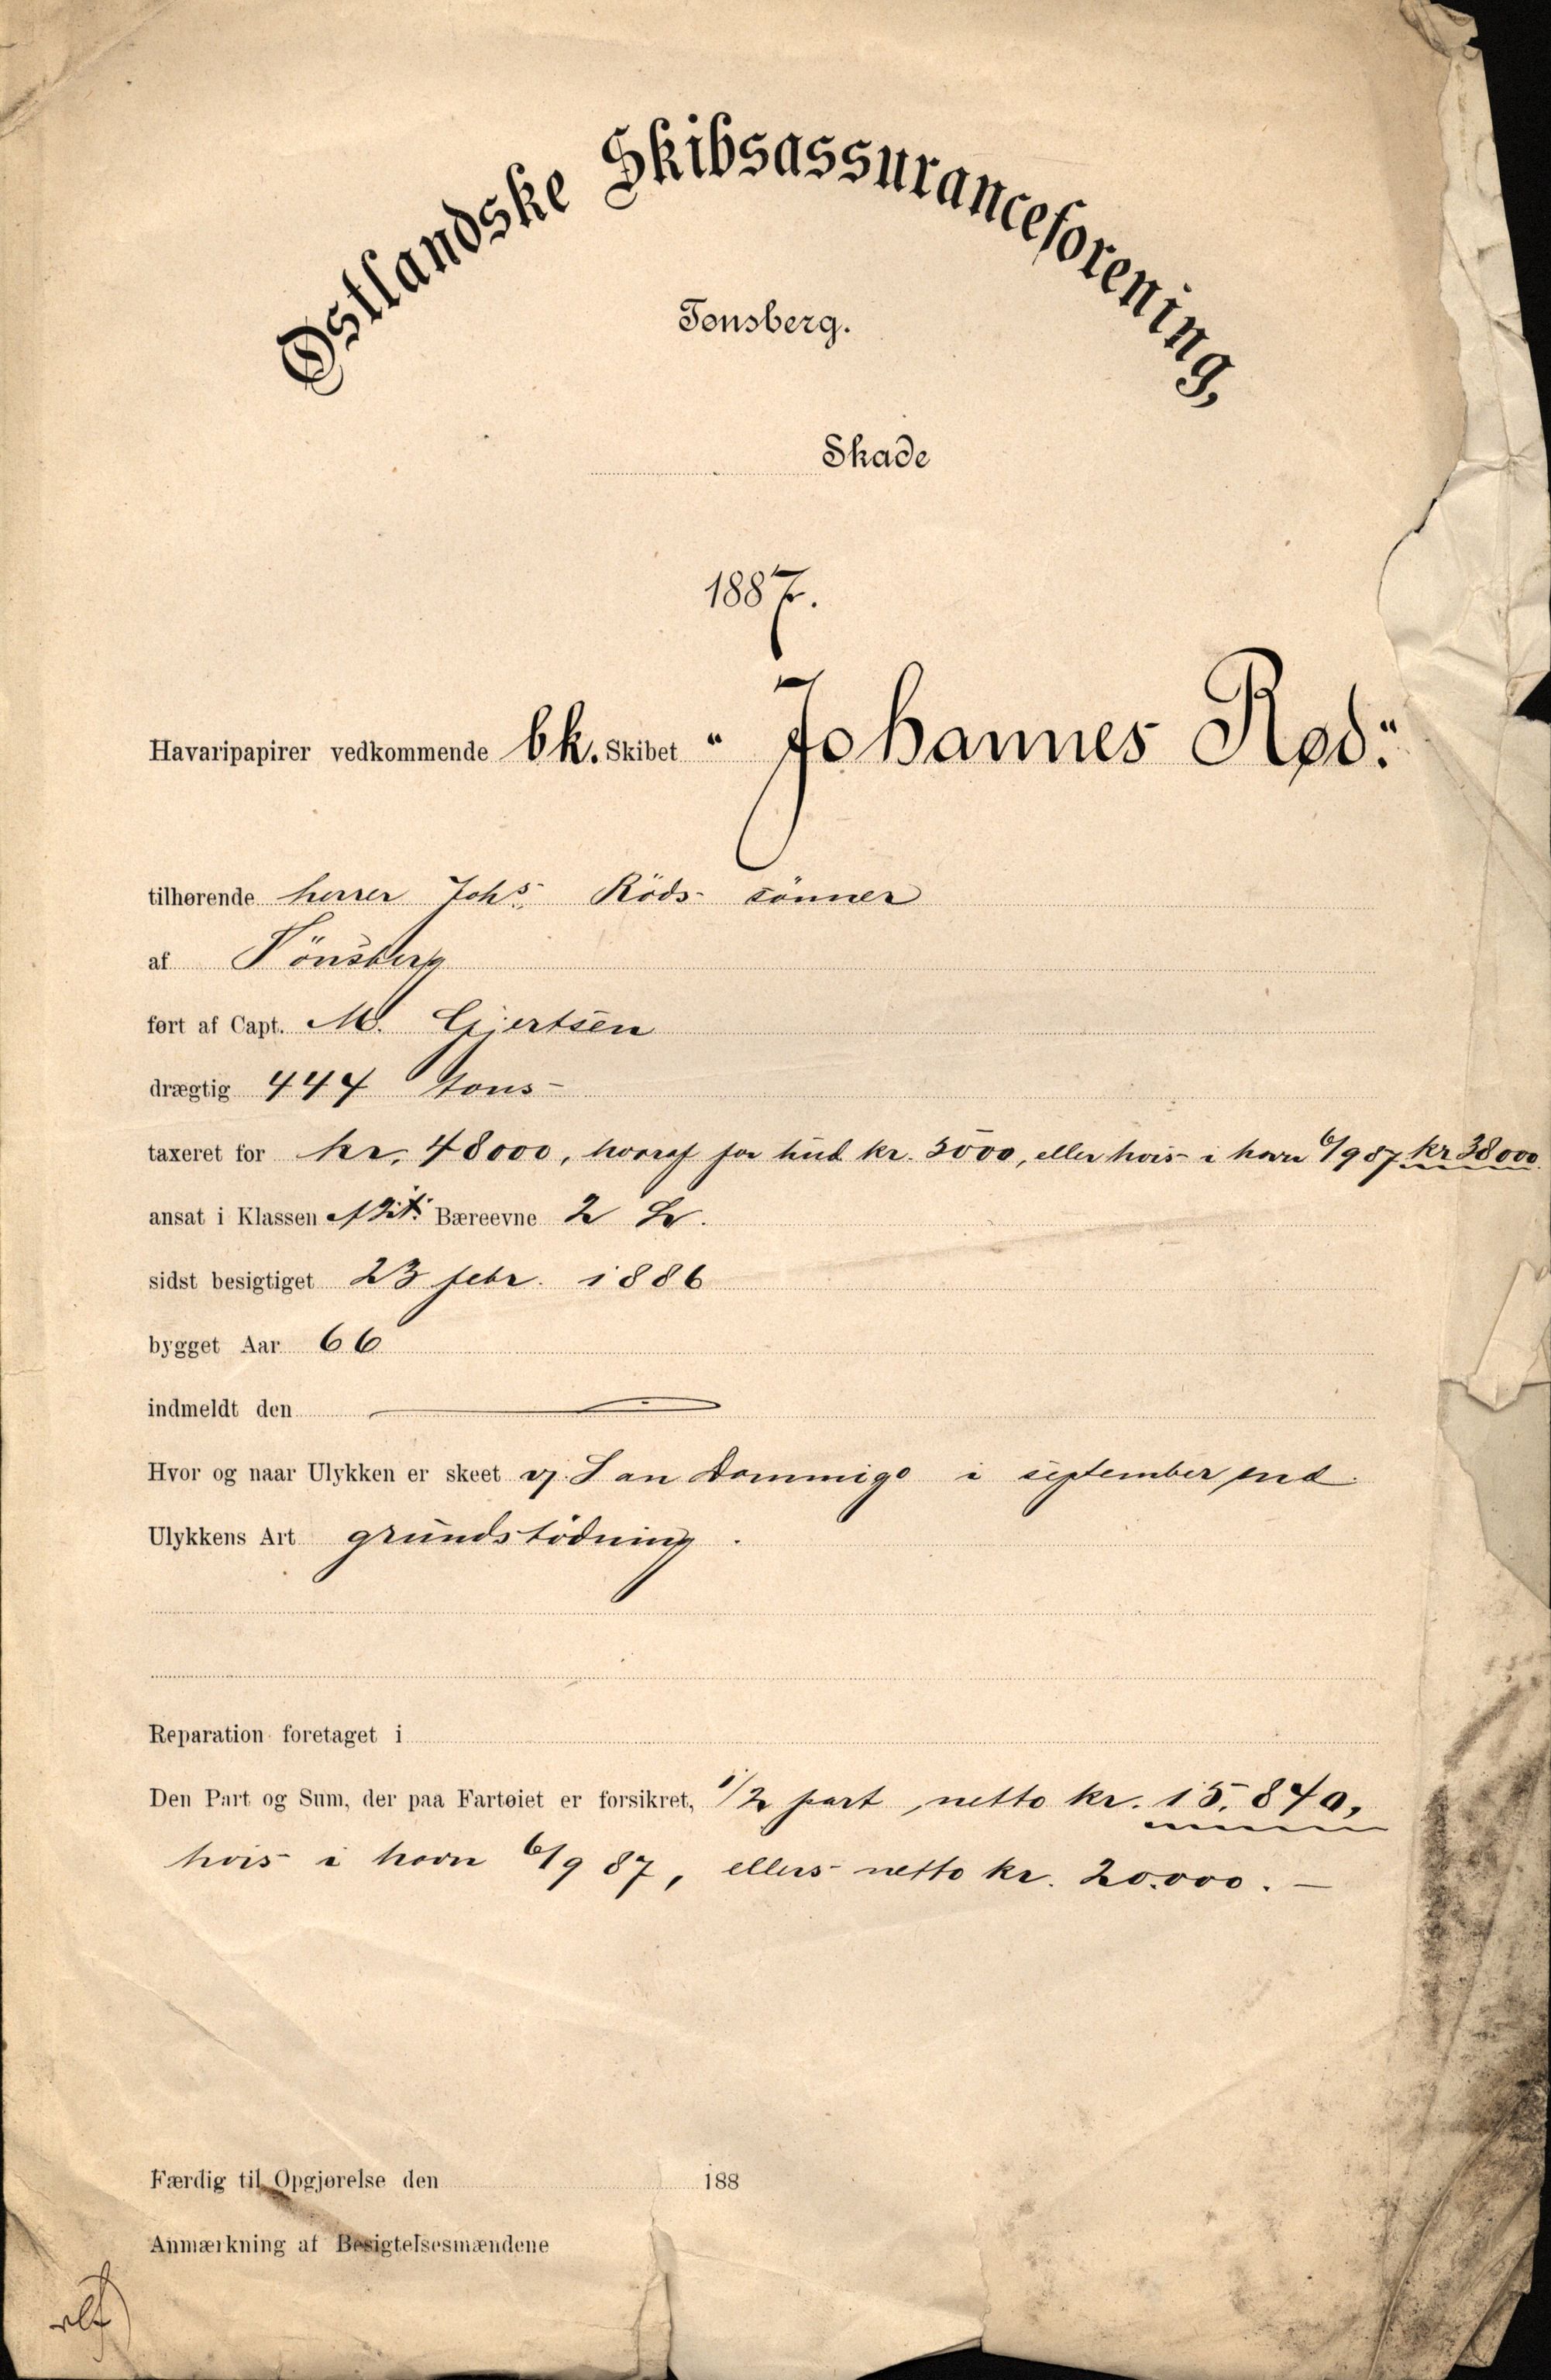 Østlandske Skibsassuranceforening,
Tønsberg.
Skade
1887.
Havaripapirer vedkommende bk. Skibet "Johannes Rød".
tilhørende herrer Johs. Röds sönner
af Tönsberg
ført af Capt. M. Gjertsen
drægtig 444 tons
taxeret for kr. 48000, hvoraf for hud kr. 5000, eller hvis i havn 6/9 87 kr 38000
ansat i Klassen Bæreevne 2
sidst besigtiget 23 febr. 1886
bygget Aar 66
indmeldt den
Hvor og naar Ulykken er skeet v/ San Dommigo i september md.
Ulykkens Art grundstödning.
Reparation foretaget i
Den Part og Sum, der paa Fartøiet er forsikret, 1/2 part, netto kr. 15.840,
hvis i havn 6/9 87, ellers netto kr. 20.000.—
Færdig til Opgjørelse den 188
Anmærkning af Besigtelsesmændene